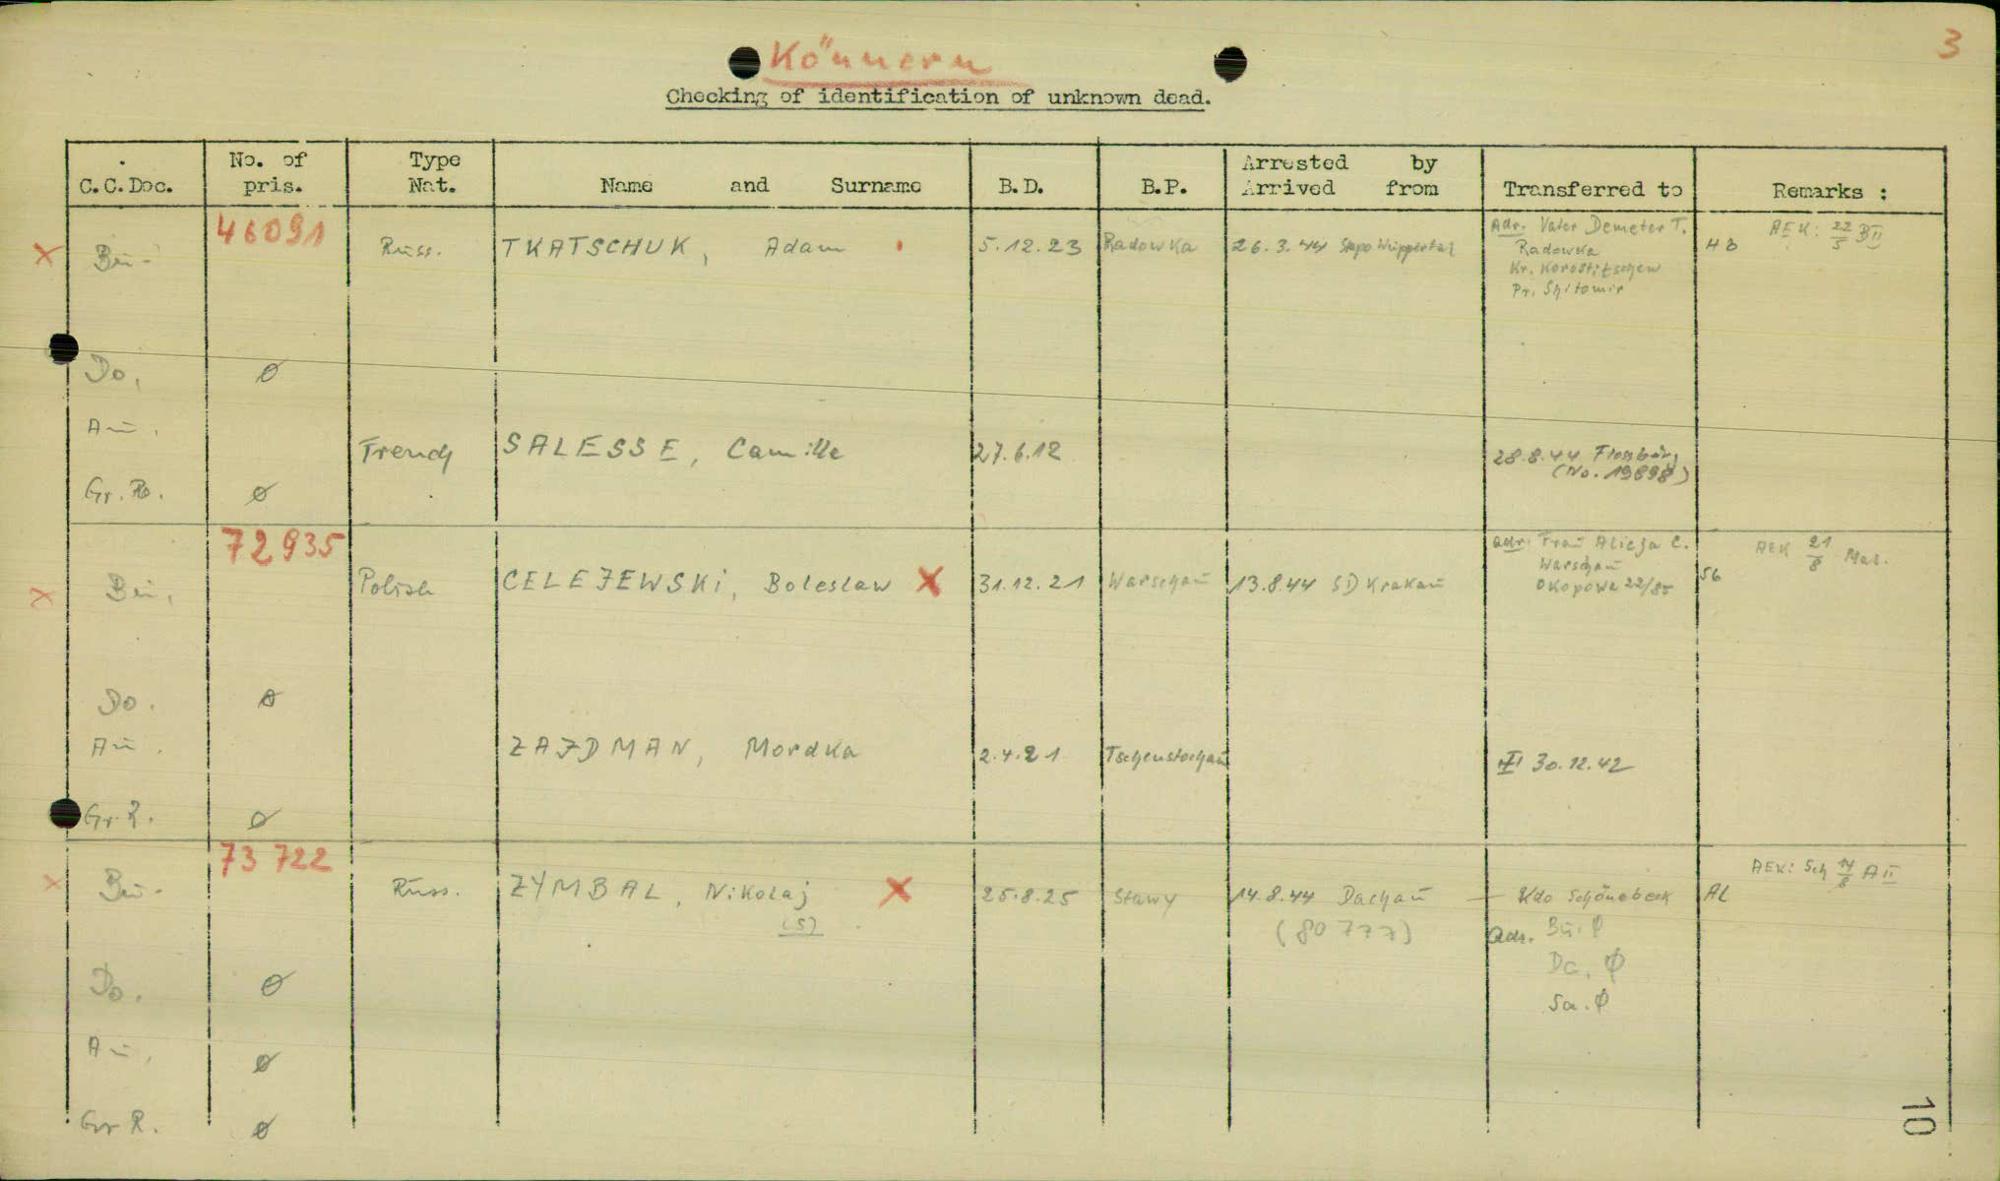 3
Könnern
Checking of identification of unknown dead.
C.C.Doc.
No. of pris.
Type Nat.
Name and Surname
B.D.
B.P.
Arrested by
Arrived from
Transferred to
Remarks :
46091
Bu.
Russ.
TKATSCHUK, Adam
5.12.23
Radowka
26.3.44 Stapo Wuppertal
Adr. Vater Demeter T.
Radowka
Kr. Korostitschew
Pr. Shitomir
AEK: 22/5 BII
Do.
Ø
Au.
French
SALESSE, Camille
27.6.12
28.8.44 Flossbürg
(No. 19898)
Gr. Ro.
Ø
72935
Bu.
Polish
CELEJEWSKi, Boleslaw X
31.12.21
Warschau
13.8.44 SD Krakau
adr. Frau Alicja C.
Warschau
Okopowa 22/85
56
AEK 21/8 Mas.
Do.
Ø
Au.
ZAJDMAN, Mordka
2.4.21
Tschenstochau
30.12.42
Gr. R.
Ø
73 722
Bu.
Russ.
ZYMBAL, Nikolaj X
(S)
25.8.25
Stawy
14.8.44 Dachau
(80777)
— Kdo Schönebeck
Adr. Bu. Ø
Da. Ø
Sa. Ø
AL
AEK: Sch 14/8 AII
Do.
Ø
Au.
Ø
Gr R.
Ø
10